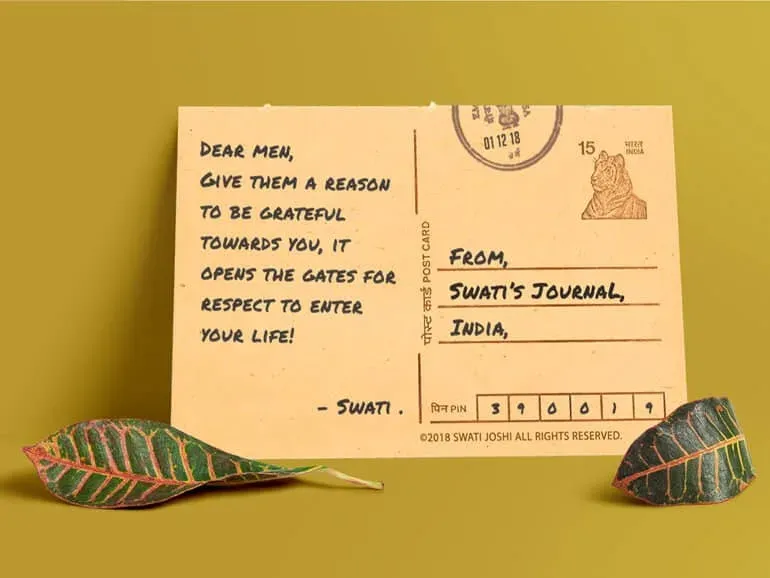 DEAR MEN,
GIVE THEM A REASON
TO BE GRATEFUL
TOWARDS YOU, IT
OPENS THE GATES FOR
RESPECT TO ENTER
YOUR LIFE!
- SWATI .
पोस्ट कार्ड POST CARD
01 12 18
15 भारत
INDIA
FROM,
SWATI'S JOURNAL,
INDIA,
पिन PIN 3 9 0 0 1 9
©2018 SWATI JOSHI ALL RIGHTS RESERVED.